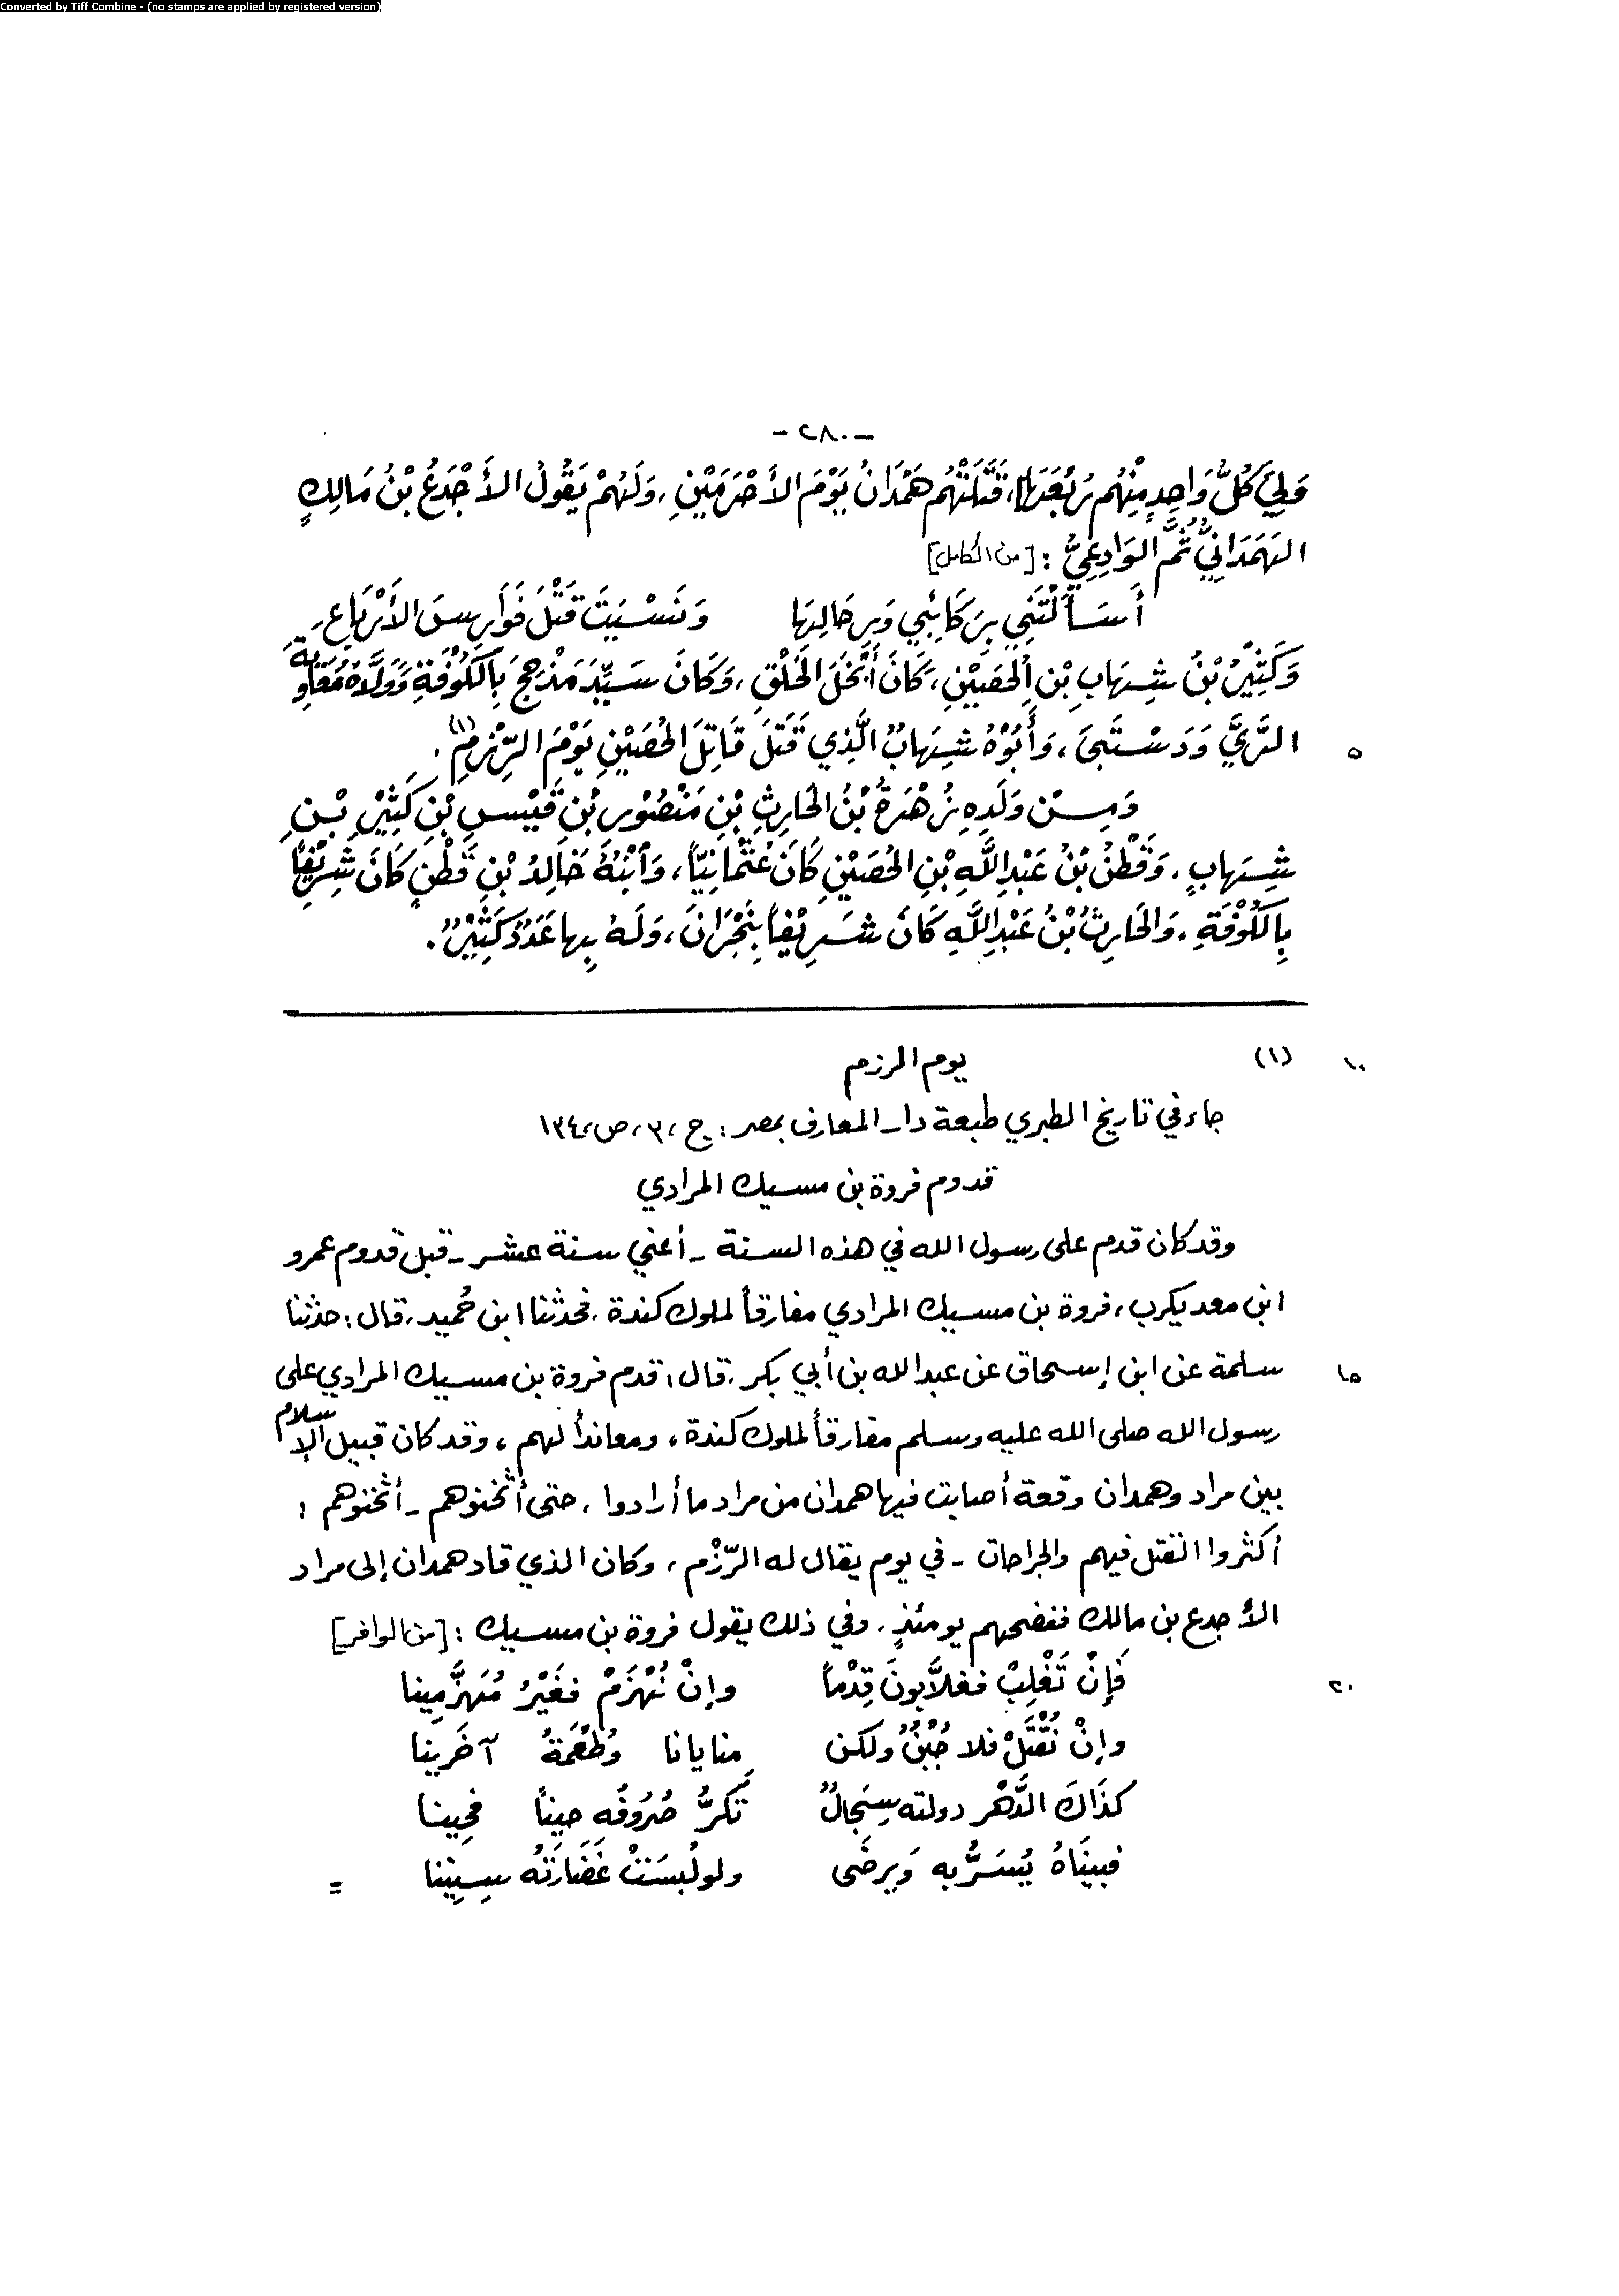 Converted by Tiff Combine - (no stamps are applied by registered version)
-٢٨٠-
وَلِيَ كُلُّ وَاحِدٍ مِنْهُم رُبْعَهَا، قَتَلَتْهُم هَمْدَانُ يَوْمَ الأَحْرَمَيْنِ، وَلَهُمْ يَقُولُ الأَجْدَعُ بْنُ مَالِكٍ
الهَمَدَانِيُّ ثُمَّ الوَادِعِيُّ : [من الكامل]
أَسَأَلْتَنِي بِرَكَائِبِي وَرِحَالِهَا وَنَسْيَتَ قَتْلَ فَوَارِسَ الأَرْبَاعِ
وَكَثِيْرُ بْنُ شِهَابِ بْنِ الحُصَيْنِ، كَانَ أَبْخَلَ الخَلْقِ، وَكَانَ سَيِّدَ مَذْحِجَ بِالكُوْفَةِ وَوَلَّاهُ مُعَاوِيَةُ
٥ الرَّيَّ وَدَسْتَبَى، وَأَبُوْهُ شِهَابٌ الَّذِي قَتَلَ قَاتِلَ الحُصَيْنِ يَوْمَ الرِّزْمِ(١).
وَمِنْ وَلَدِهِ زُهْرَةُ بْنُ الحَارِثِ بْنِ مَنْصُوْرِ بْنِ قَيْسِ بْنِ كَثِيْرِ بْنِ
شِهَابٍ، وَقَطْنُ بْنُ عَبْدِ اللَّهِ بْنِ الحُصَيْنِ كَانَ عُثْمَانِيّاً، وَابْنُهُ خَالِدُ بْنِ قَطْنٍ كَانَ شَرِيْفاً
بِالكُوْفَةِ، وَالحَارِثُ بْنُ عَبْدِ اللَّهِ كَانَ شَرِيْفاً بِنَجْرَانَ، وَلَهُ بِهَا عَدَدٌ كَثِيْرٌ.
١٠ (١) يوم الرزم
جاء في تاريخ الطبري طبعة دار المعارف بمصر: ج، ٣، ص، ١٣٤
قدوم فروة بن مسيك المرادي
وقد كان قدم على رسول الله في هذه السنة - أعني سنة عشر - قبل قدوم عمرو
ابن معد يكرب، فروة بن مسيك المرادي مفارقاً لملوك كندة. فحدثنا ابن حُميد، قال: حدثنا
١٥ سلمة عن ابن إسحاق عن عبد الله بن أبي بكر، قال: قدم فروة بن مسيك المرادي على
رسول الله صلى الله عليه وسلم مفارقاً لملوك كندة، ومعانداً لهم، وقد كان قبيل الإسلام
بين مراد وهمدان وقعة أصابت فيها همدان من مراد ما أرادوا، حتى أثخنوهم - أثخنوهم :
أكثروا القتل فيهم والجراحات - في يوم يقال له الرّزْم، وكان الذي قاد همدان إلى مراد
الأجدع بن مالك ففضحهم يومئذٍ. وفي ذلك يقول فروة بن مسيك : [من الوافر]
٢٠ فَإِنْ نَغْلِبْ فغلاَّبونَ قِدْماً وإنْ نُهْزَمْ فغَيْرُ مُهَزَّمِينا
وإنْ نُقْتَلْ فلا جُبْنٌ ولكن مِنايانا وطُعْمَةُ آخَرِينا
كذَاكَ الدَّهْر دولته سِجَالٌ تَكرُّ صُرُوفُه حيناً فحِينا
فبينَاهُ يُسَرُّ به وَيرضَى ولو لُبسَتْ غَضَارَتهُ سِنِينا =